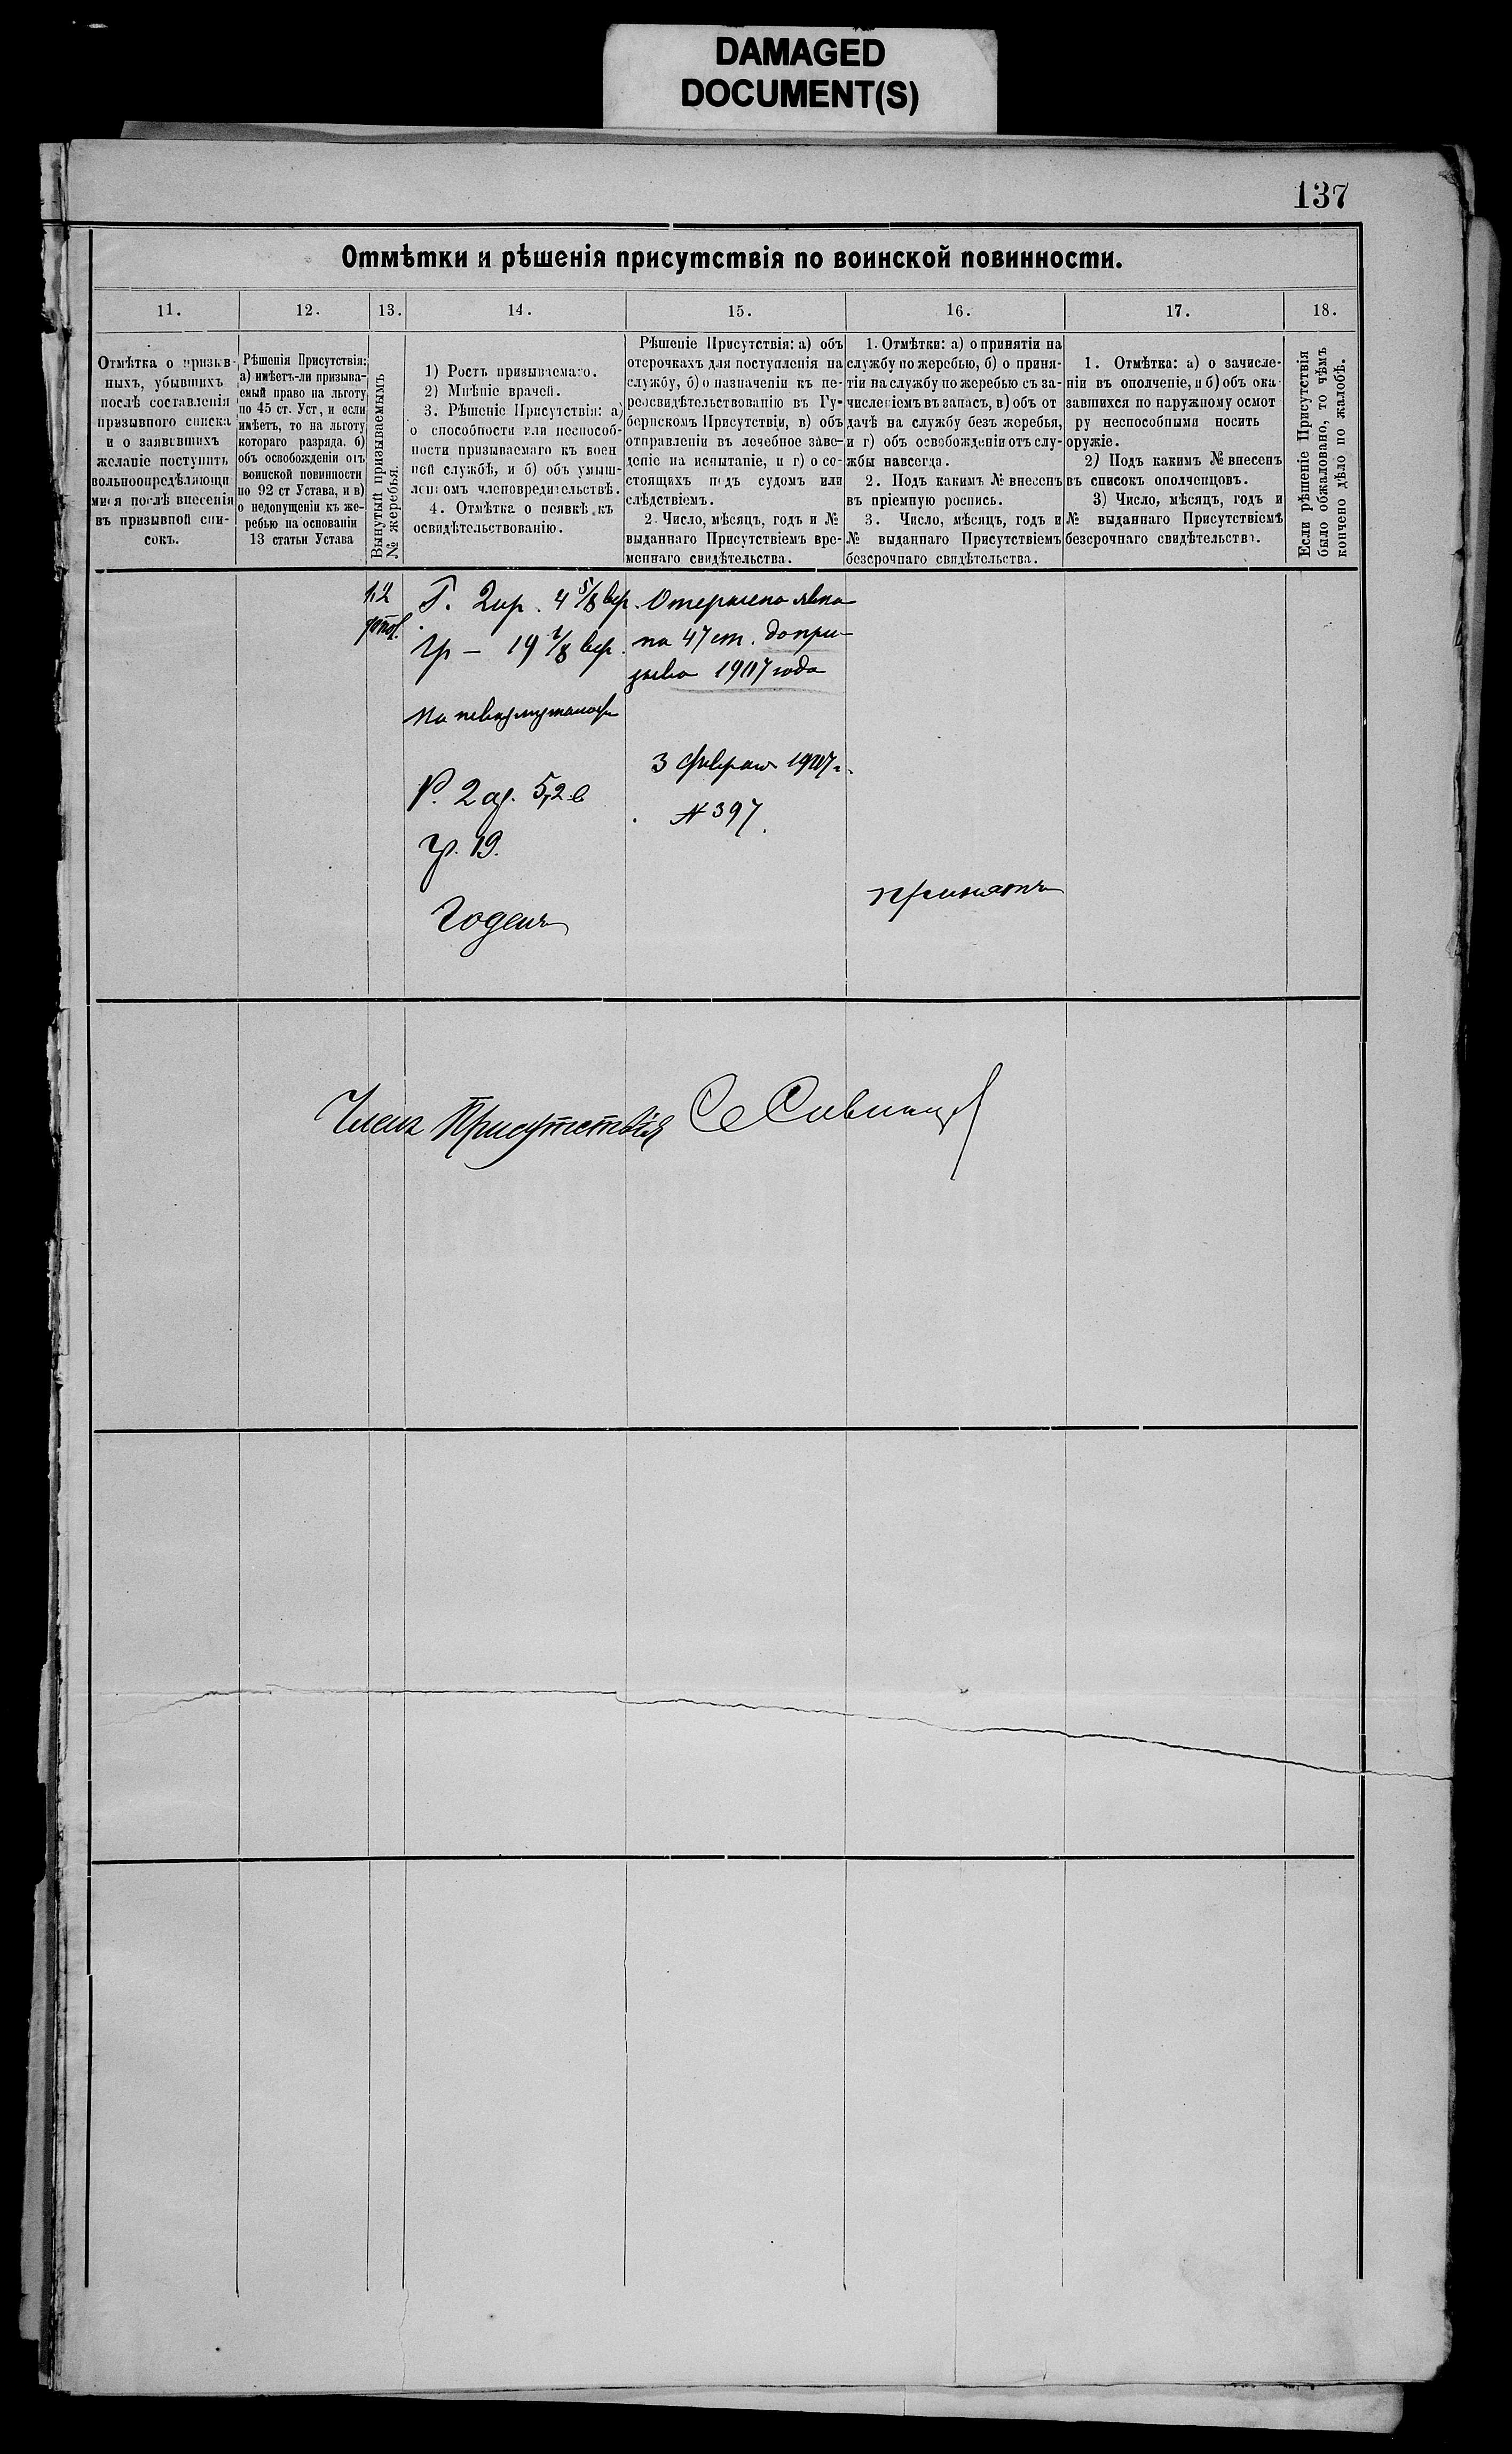 DAMAGED
DOCUMENT(S)
137
Отмѣтки и рѣшенія присутствія по воинской повинности.
11.
12.
13.
14.
15.
16.
17.
18.
Отмѣтка о призыв-
ныхъ, убывшихъ
послѣ составленія
призывного списка
и о заявившихъ
желаніе поступить
вольноопредѣляющи
мися послѣ внесенія
въ призывной спи-
сокъ.
Рѣшенія Присутствія:
а) имѣетъ-ли призыва-
емый право на льготу
по 45 ст. Уст, и если
имѣетъ, то на льготу
котораго разряда. б)
объ освобожденіи отъ
воинской повинности
по 92 ст Устава, и в)
о недопущеніи къ же-
ребью на основаніи
13 статьи Устава
Вынутый призываемымъ
№ жеребья.
1) Ростъ призываемаго.
2) Мнѣніе врачей.
3. Рѣшеніе Присутствія: а)
о способности или неспособ-
ности призываемаго къ воен
ной службѣ, и б) объ умыш-
ленномъ членовредительствѣ.
4. Отмѣтка о неявкѣ къ
освидѣтельствованію.
Рѣшеніе Присутствія: а) объ
отсрочкахъ для поступленія на
службу, б) о назначеніи къ пе-
реосвидѣтельствованію въ Гу-
бернскомъ Присутствіи, в) объ
отправленіи въ лечебное заве-
деніе на испытаніе, и г) о со-
стоящихъ подъ судомъ или
слѣдствіемъ.
2. Число, мѣсяцъ, годъ и №
выданнаго Присутствіемъ вре-
меннаго свидѣтельства.
1. Отмѣтки: а) о принятіи на
службу по жеребью, б) о приня-
тіи на службу по жеребью съ за-
численіемъ въ запасъ, в) объ от
дачѣ на службу безъ жеребья,
и г) объ освобожденіи отъ слу-
жбы навсегда.
2. Подъ какимъ № внесенъ
въ пріемную роспись.
3. Число, мѣсяцъ, годъ и
№ выданнаго Присутствіемъ
безсрочнаго свидѣтельства.
1. Отмѣтка: а) о зачисле-
ніи въ ополченіе, и б) объ ока
завшихся по наружному осмот
ру неспособными носить
оружіе.
2) Подъ какимъ № внесенъ
въ списокъ ополченцовъ.
3) Число, мѣсяцъ, годъ и
№ выданнаго Присутствіемъ
безсрочнаго свидѣтельства.
Если рѣшеніе Присутствія
было обжаловано, то чѣмъ
кончено дѣло по жалобѣ.
12
Р. 2 ар. 4 5/8 вер.
гр — 19 1/8 вер.
По невозмужалости
Р. 2 ар. 5,2 в
гр. 19.
Годенъ
Отсрочена явка
по 47 ст. до при-
зыва 1907 года
3 Февраля 1907 г.
№ 397
принятъ
Членъ Присутствія